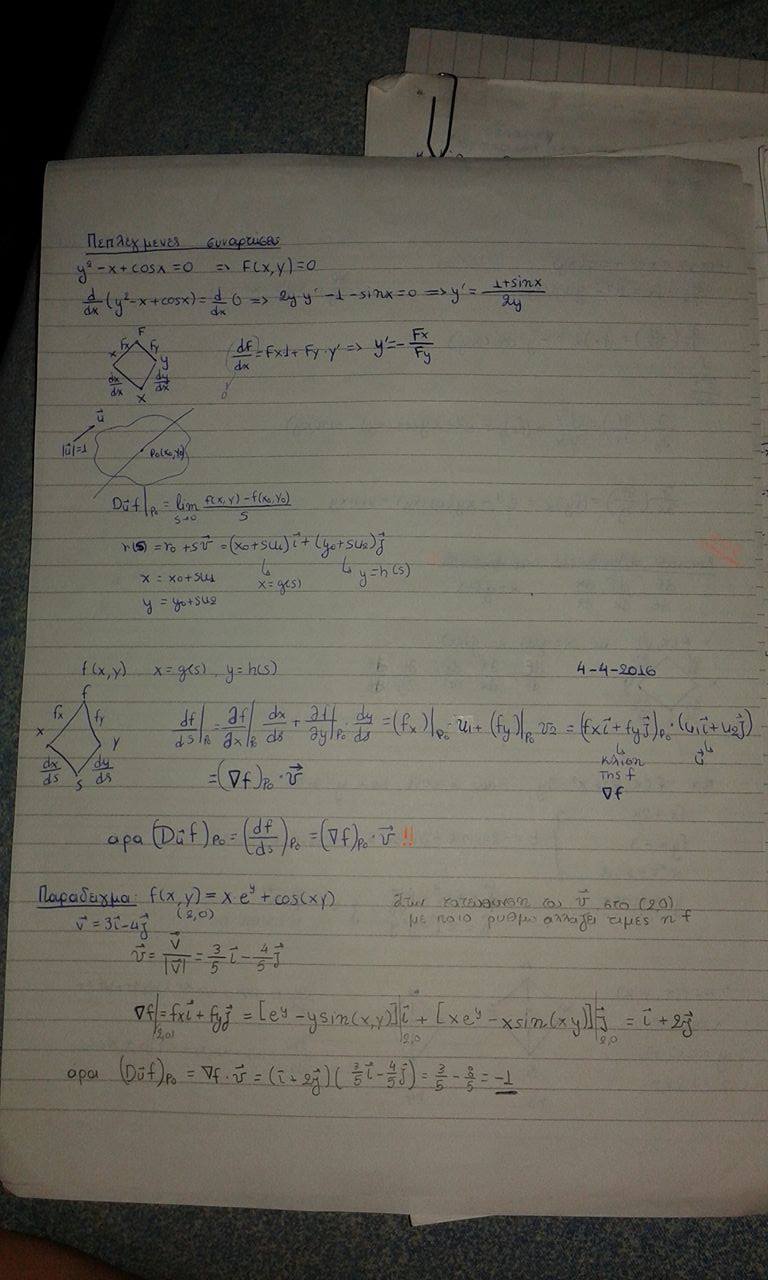 Πεπλεγμενες συναρτησεις
y² - x + cosx = 0 => F(x,y) = 0
d/dx (y² - x + cosx) = d/dx 0 => 2y·y' - 1 - sinx = 0 => y' = (1+sinx)/2y
F
Fx Fy
x y
dx/dx dy/dx
x
(df/dx) = Fx1 + Fy·y' => y' = - Fx/Fy
0
u⃗
|u⃗|=1
P₀(x₀,y₀)
Du⃗f|P₀ = lim s→0 (f(x,y) - f(x₀,y₀))/s
r(s) = r₀ + sv⃗ = (x₀+su₁)i⃗ + (y₀+su₂)j⃗
x = x₀+su₁ ↳ x=g(s) ↳ y=h(s)
y = y₀+su₂
f(x,y) x=g(s), y=h(s) 4-4-2016
f
fx fy
x y
dx/ds dy/ds
s
df/ds|P₀ = ∂f/∂x|P₀ dx/ds + ∂f/∂y|P₀ · dy/ds = (fx)|P₀ · u₁ + (fy)|P₀ v₂ = (fxi⃗ + fyj⃗)P₀ · (u₁i⃗ + u₂j⃗)
κλιση u⃗
της f
∇f
= (∇f)P₀ · v⃗
αρα (Du⃗f)P₀ = (df/ds)P₀ = (∇f)P₀ · v⃗ !!
Παραδειγμα: f(x,y) = x·e^y + cos(xy)
(2,0)
v⃗ = 3i⃗ - 4j⃗
Στην κατευθυνση του v⃗ στο (2,0)
με ποιο ρυθμο αλλαζει τιμες η f
v⃗ = v⃗/|v⃗| = 3/5 i⃗ - 4/5 j⃗
∇f|2,0 = fxi⃗ + fyj⃗ = [e^y - ysin(x,y)]|2,0 i⃗ + [xe^y - xsin(xy)]|2,0 j⃗ = i⃗ + 2j⃗
αρα (Du⃗f)P₀ = ∇f·v⃗ = (i⃗ + 2j⃗)(3/5 i⃗ - 4/5 j⃗) = 3/5 - 8/5 = -1